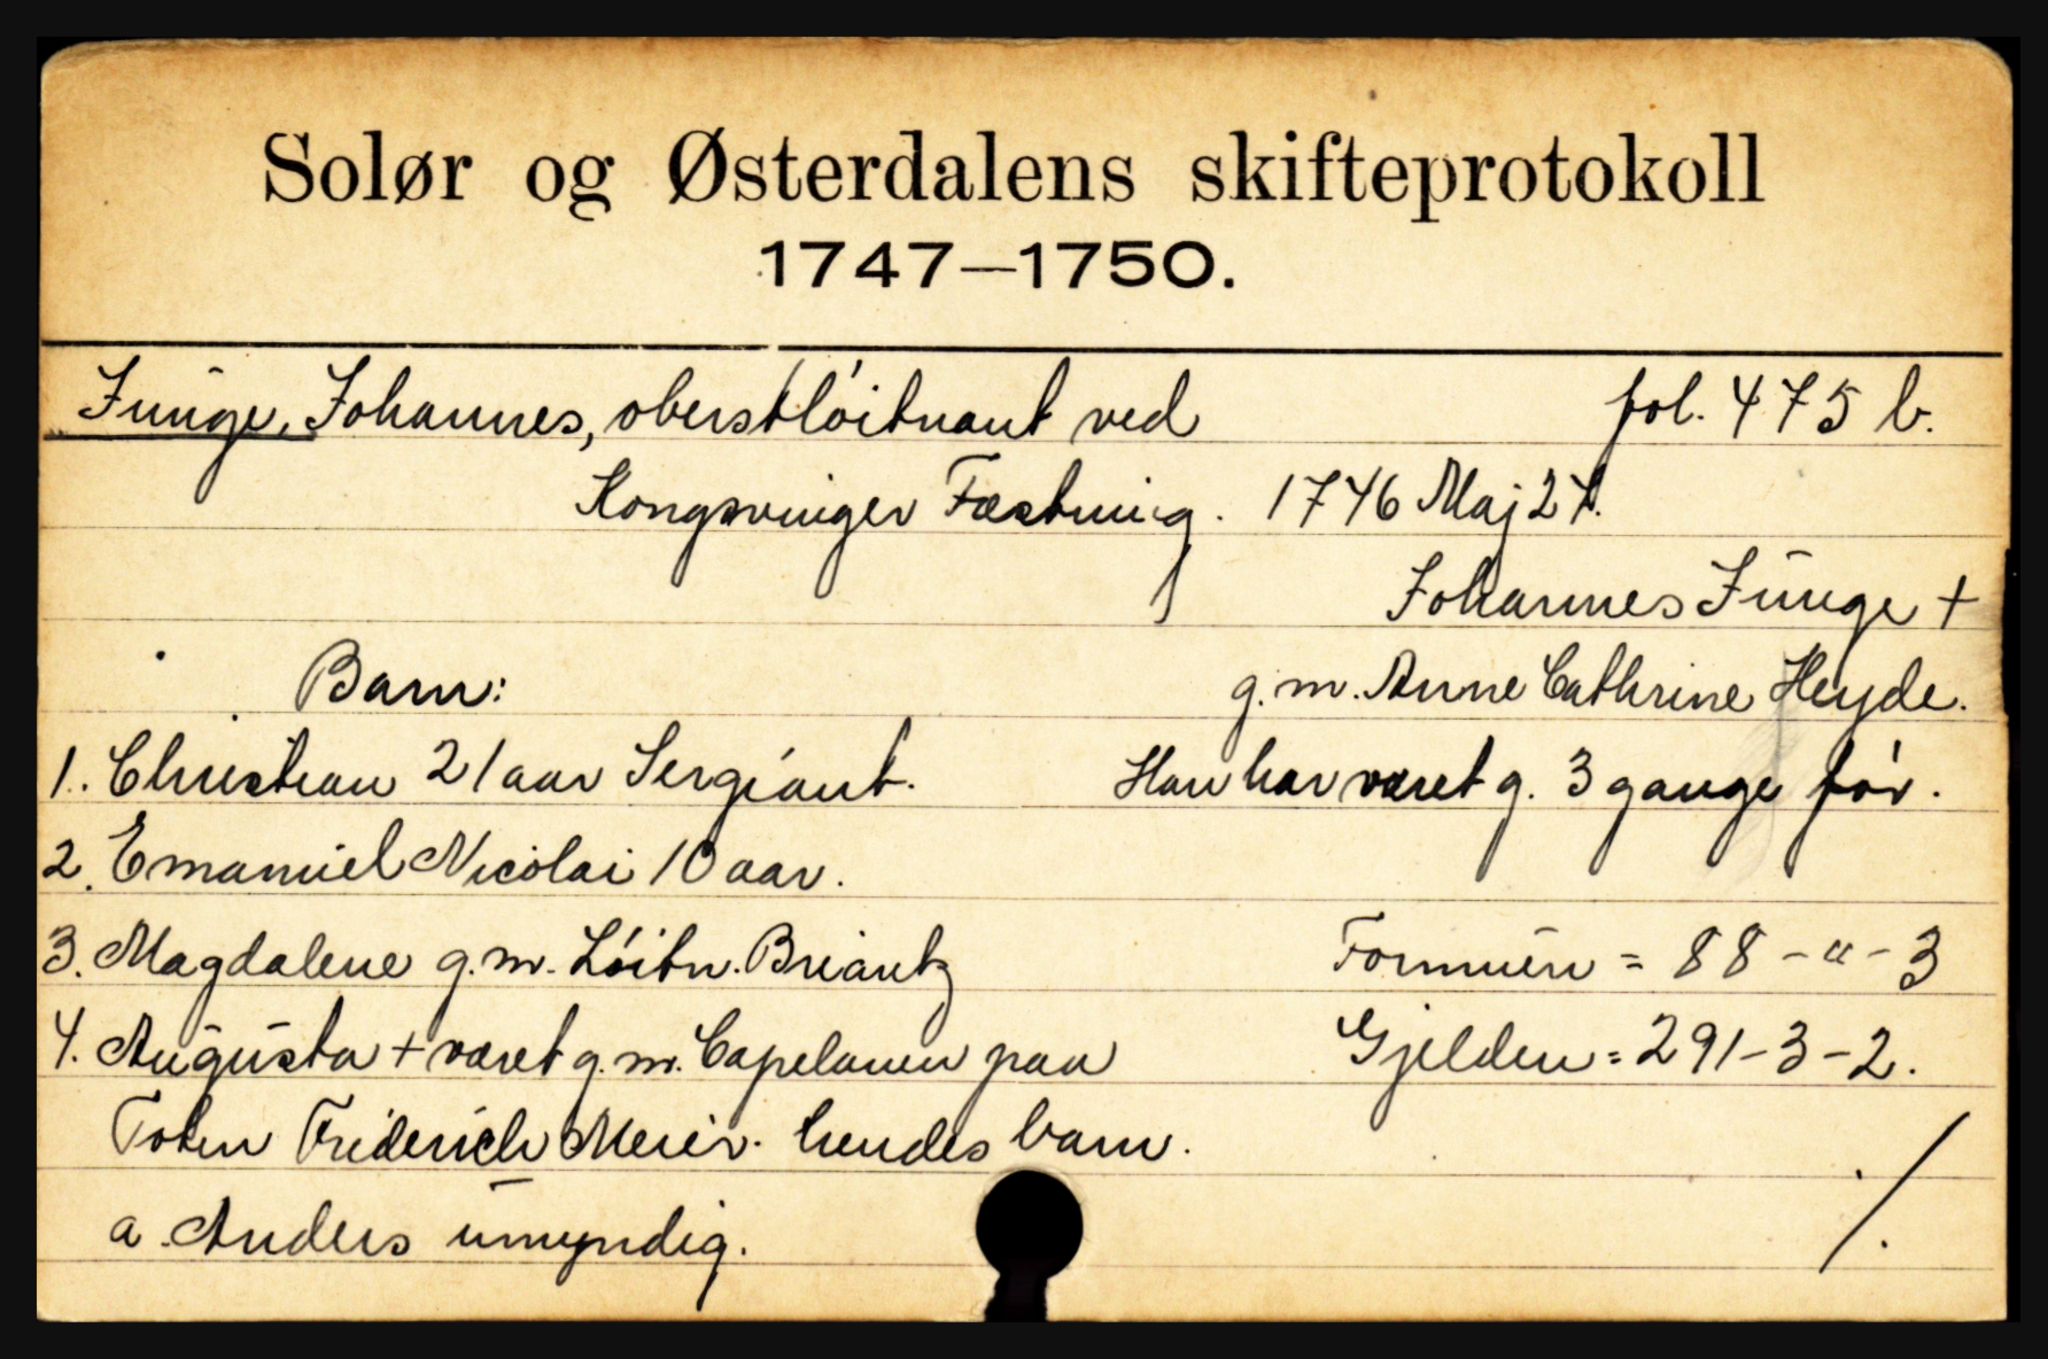 Solør og Østerdalens skifteprotokoll
1747–1750.
Junge, Johannes, oberstlöitnant ved fol. 475 b.
Kongsvinger Fæstning. 1746 Maj 27.
Johannes Junge +
Barn: g. m. Anne Cathrine Heyde.
1. Christian 21 aar Sergiant. Han har været g. 3 gange för.
2. Emanuel Nicolai 10 aar.
3. Magdalene g. m. Löitn. Briantz Formuen = 88 - " - 3
4. Augusta + været g. m. Capelanen paa Gjelden = 291 - 3 - 2.
Toten Friderich Meier. hendes barn.
a Anders umyndig. ./.